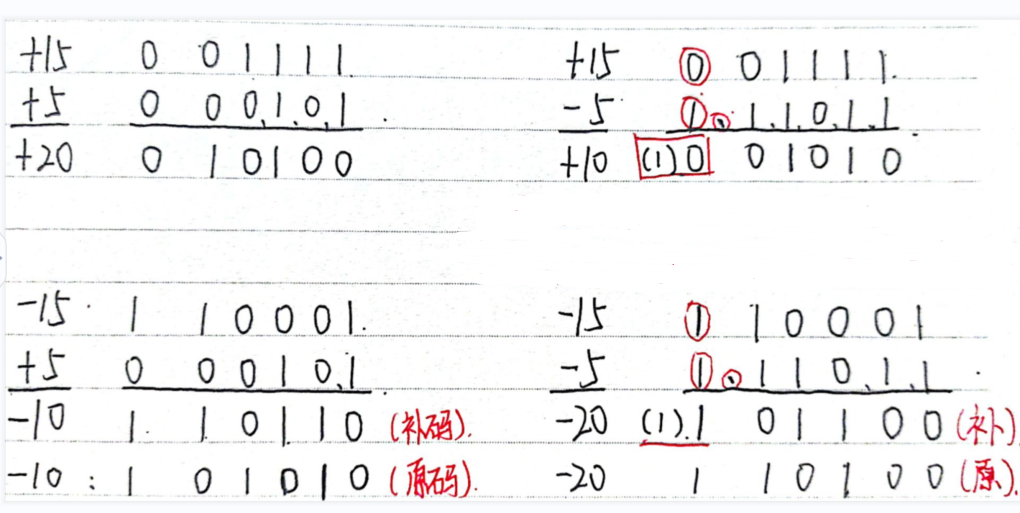 +15 0 0 1 1 1 1
+5 0 0 0 1 0 1
+20 0 1 0 1 0 0
+15 0 0 1 1 1 1
-5 1 1 1 0 1 1
+10 (1) 0 0 1 0 1 0
-15 1 1 0 0 0 1
+5 0 0 0 1 0 1
-10 1 1 0 1 1 0 (补码).
-10: 1 0 1 0 1 0 (原码).
-15 1 1 0 0 0 1
-5 1 1 1 0 1 1
-20 (1) 1 0 1 1 0 0 (补)
-20 1 1 0 1 0 0 (原).